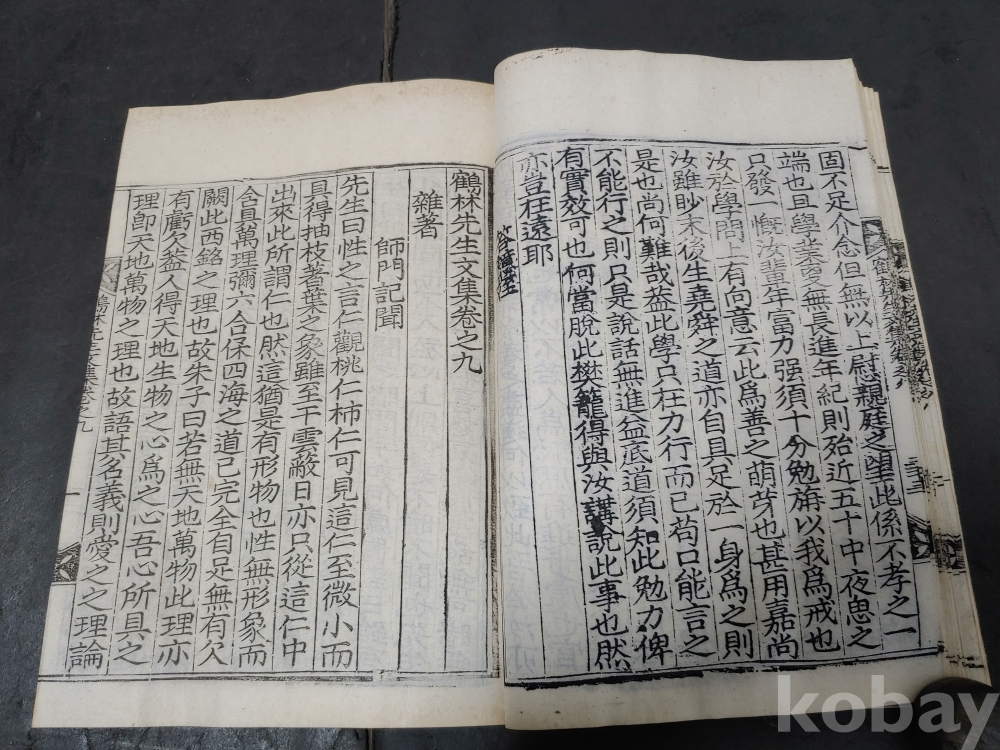 固不足介念但無以上慰親庭之望此係不孝之一
端也且學業又無長進年紀則殆近五十中夜思之
只發一慨汝輩年富力强須十分勉旃以我爲戒也
汝於學問上有向意云此爲善之萌芽也甚用嘉尚
汝雖眇末後生堯舜之道亦自具足於一身爲之則
是也尚何難哉益此學只在力行而已苟只能言之
不能行之則只是說話無進益底道須知此勉力俾
有實效可也何當脫此樊籠得與汝講說此事也然
亦豈在遠耶
鶴林先生文集卷之九
雜著
師門記聞
先生曰性之言仁觀桃仁柿仁可見這仁至微小而
具得抽枝著葉之象雖至干雲蔽日亦只從這仁中
出來此所謂仁也然這猶是有形物也性無形象而
含具萬理彌六合保四海之道已完全自足無有欠
闕此西銘之理也故朱子曰若無天地萬物此理亦
有虧欠盖人得天地生物之心爲之心吾心所具之
理卽天地萬物之理也故語其名義則愛之之理論
鶴林先生文集卷之九
kobay